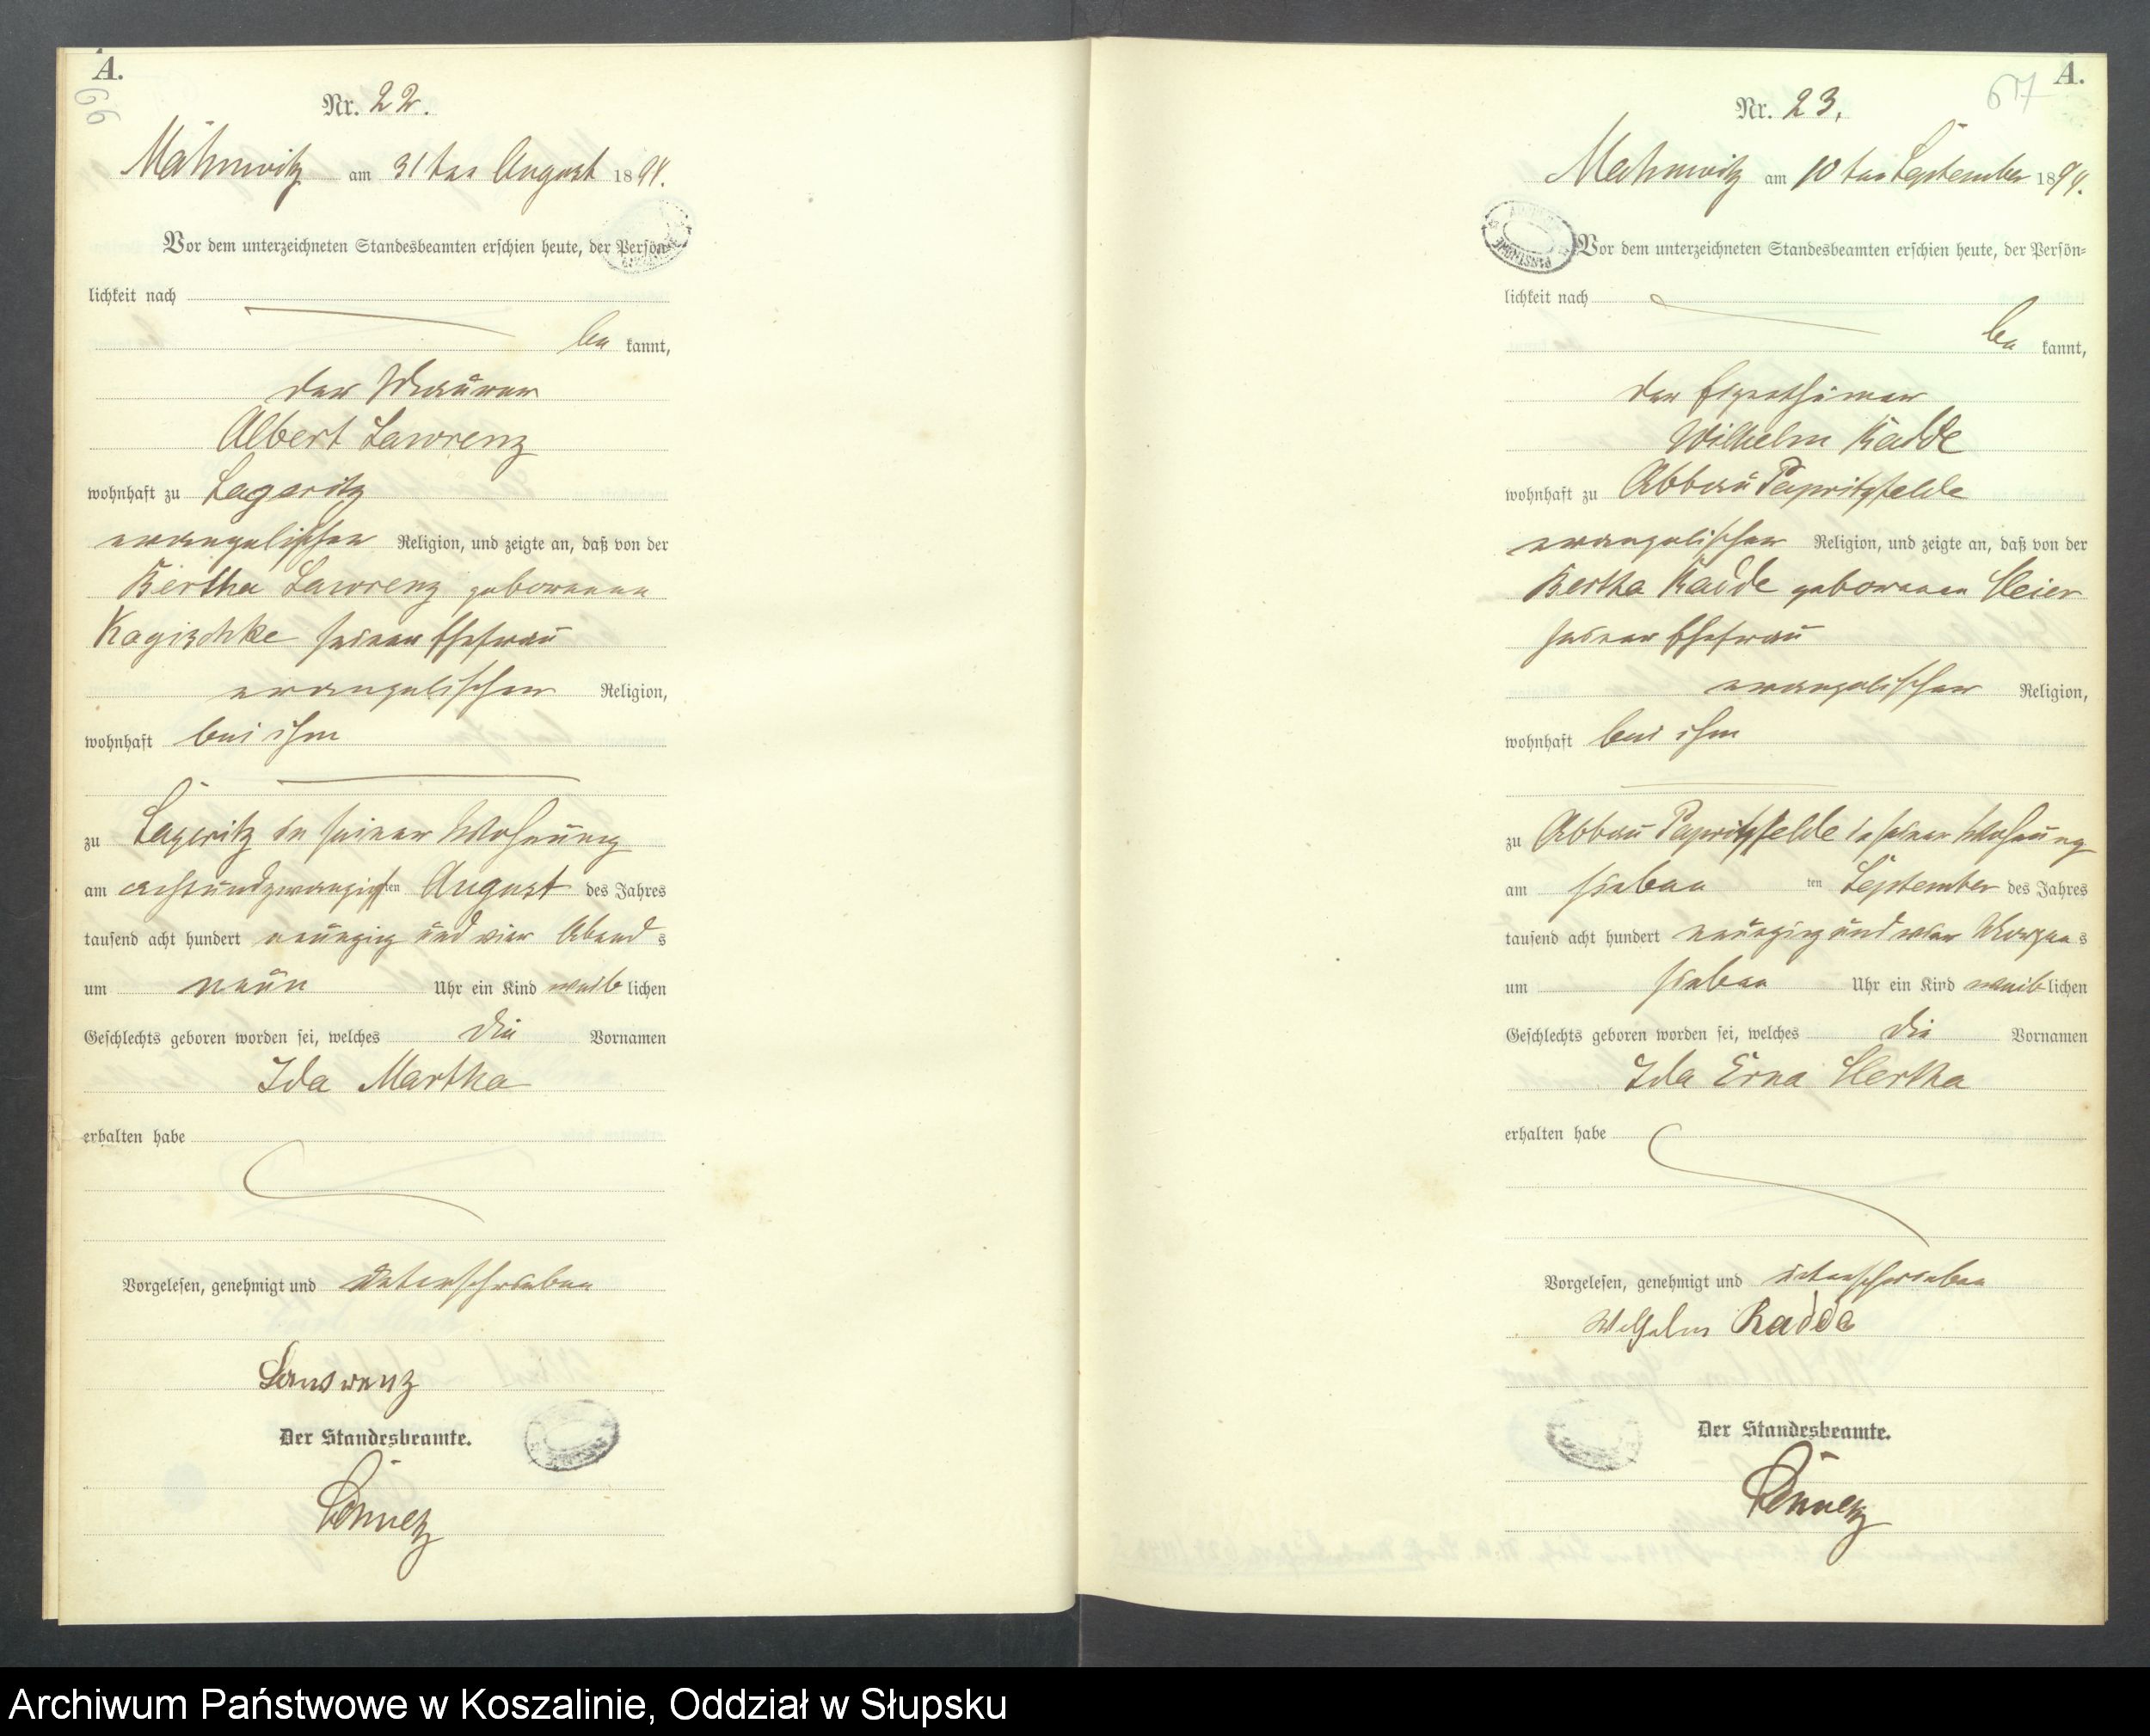 A.
66
Nr. 22.
Mahnwitz am 31ten August 1894.
Vor dem unterzeichneten Standesbeamten erschien heute, der Persön-
lichkeit nach
be kannt,
der Maurer
Albert Lawrenz
wohnhaft zu Lageritz
evangelischer Religion, und zeigte an, daß von der
Bertha Lawrenz geborenen
Kagischke seiner Ehefrau
evangelischer Religion,
wohnhaft bei ihm
zu Lageritz in seiner Wohnung
am achtundzwanzigsten August des Jahres
tausend acht hundert neunzig und vier Abends
um neun Uhr ein Kind weiblichen
Geschlechts geboren worden sei, welches die Vornamen
Ida Martha
erhalten habe
Vorgelesen, genehmigt und unterschrieben
Lawrenz
Der Standesbeamte.
A.
67
Nr. 23.
Mahnwitz am 10ten September 1894.
Vor dem unterzeichneten Standesbeamten erschien heute, der Persön-
lichkeit nach
be kannt,
der Eigenthümer
Wilhelm Radde
wohnhaft zu Abbau Papritzfelde
evangelischer Religion, und zeigte an, daß von der
Bertha Radde geborenen Heier
seiner Ehefrau
evangelischer Religion,
wohnhaft bei ihm
zu Abbau Papritzfelde in seiner Wohnung
am sieben ten September des Jahres
tausend acht hundert neunzig und vier Morgens
um sieben Uhr ein Kind weiblichen
Geschlechts geboren worden sei, welches die Vornamen
Ida Erna Hertha
erhalten habe
Vorgelesen, genehmigt und unterschrieben
Wilhelm Radde
Der Standesbeamte.
Archiwum Państwowe w Koszalinie, Oddział w Słupsku